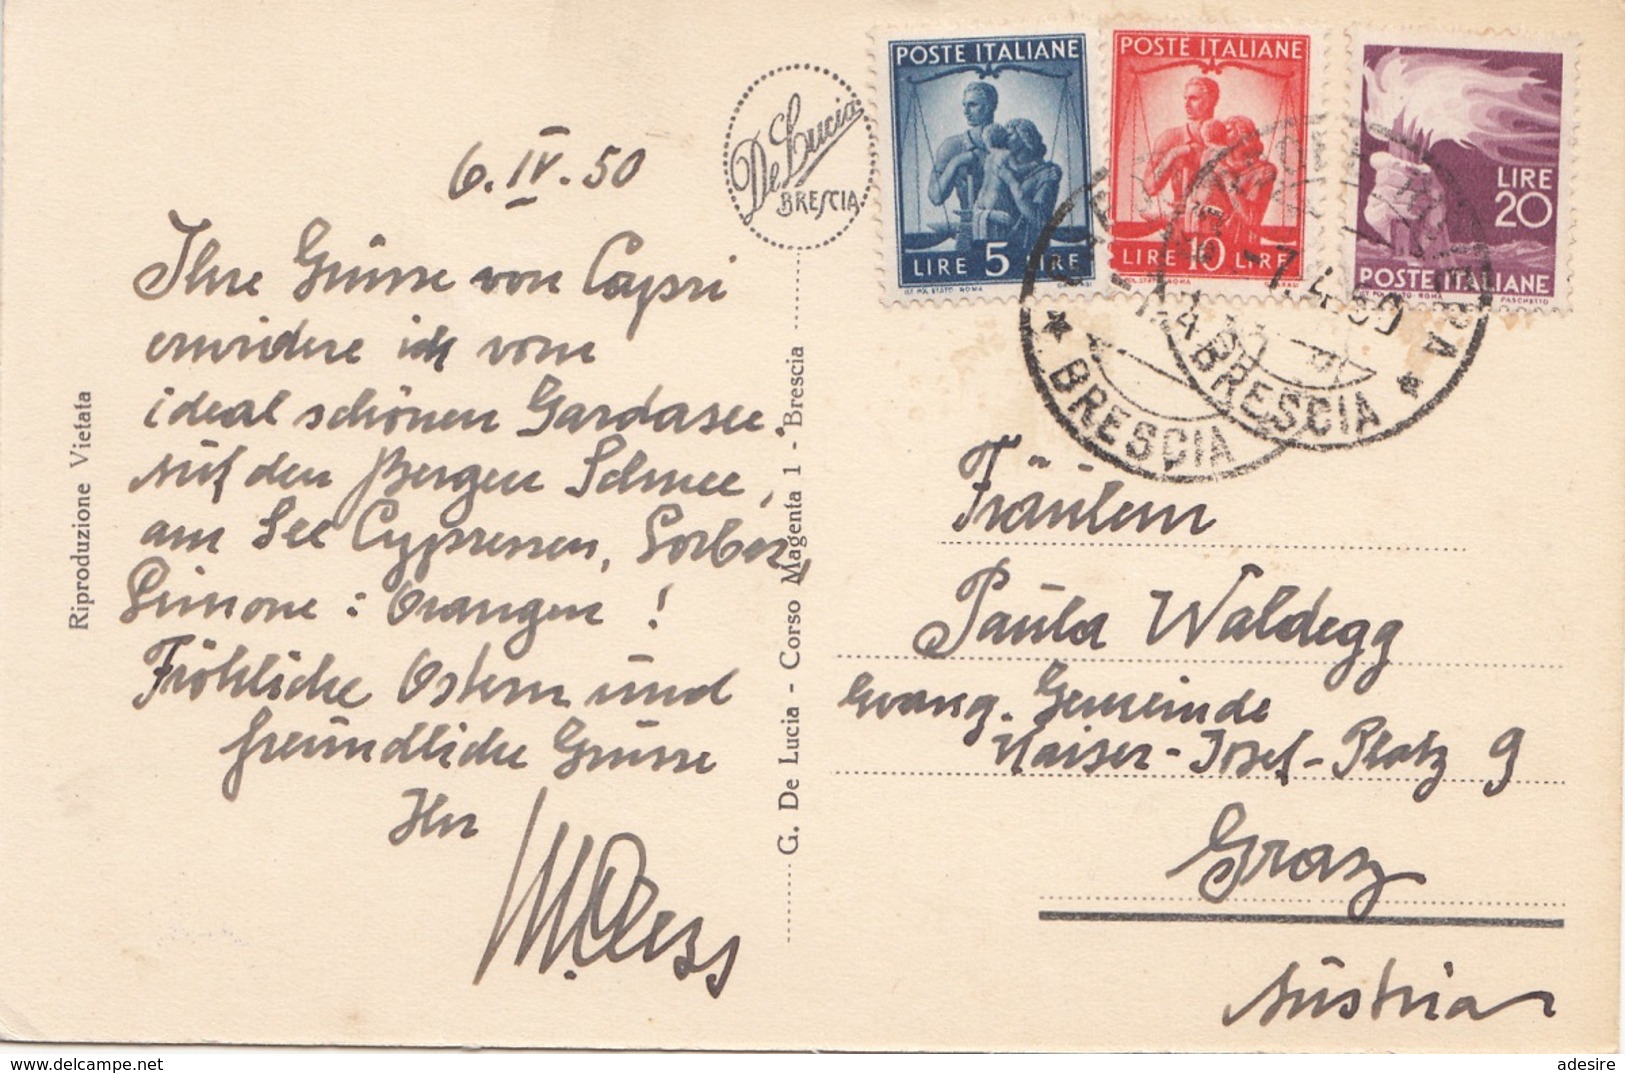 6. IV. 50
Ihre Grüsse von Capri
erwidere ich vom
ideal schönen Gardasee.
Auf den Bergen Schnee,
am See Cypressen, Lorbeer,
Limone: Orangen!
Fröhliche Ostern und
freundliche Grüsse
Ihr
Riproduzione Vietata
De Lucia
BRESCIA
G. De Lucia - Corso Magenta 1 - Brescia
POSTE ITALIANE
LIRE 5 LIRE
IST. POL. STATO ROMA
POSTE ITALIANE
LIRE 10 LIRE
POL. STATO ROMA
LIRE
20
POSTE ITALIANE
PASCHETTO
-7.4.50
BRESCIA
BRESCIA
Fräulein
Paula Waldegg
Evang. Gemeinde
Kaiser-Josef-Platz 9
Graz
Austria
adesire